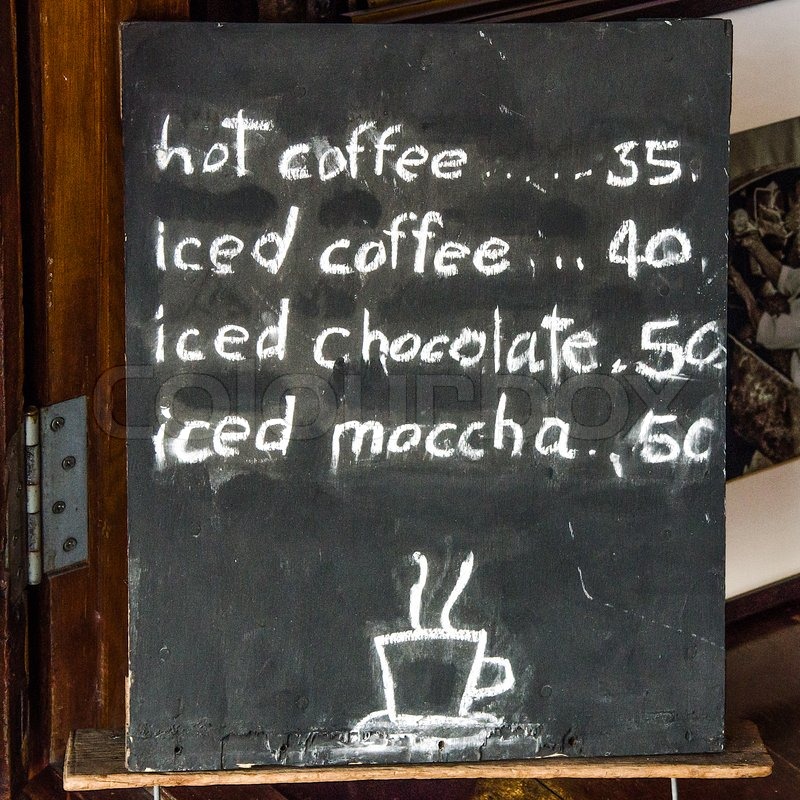 hot coffee ...... 35.
iced coffee ... 40.
iced chocolate. 50
iced moccha.. 50
colourbox